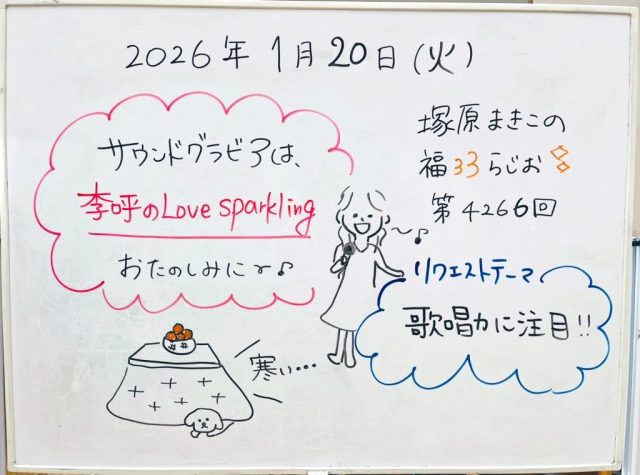 2026年 1月20日(火)
サウンドグラビアは、
李呼のLove sparkling
おたのしみに〜♪
塚原まきこの
福33らじお
第4266回
リクエストテーマ
歌唱力に注目!!
寒い…